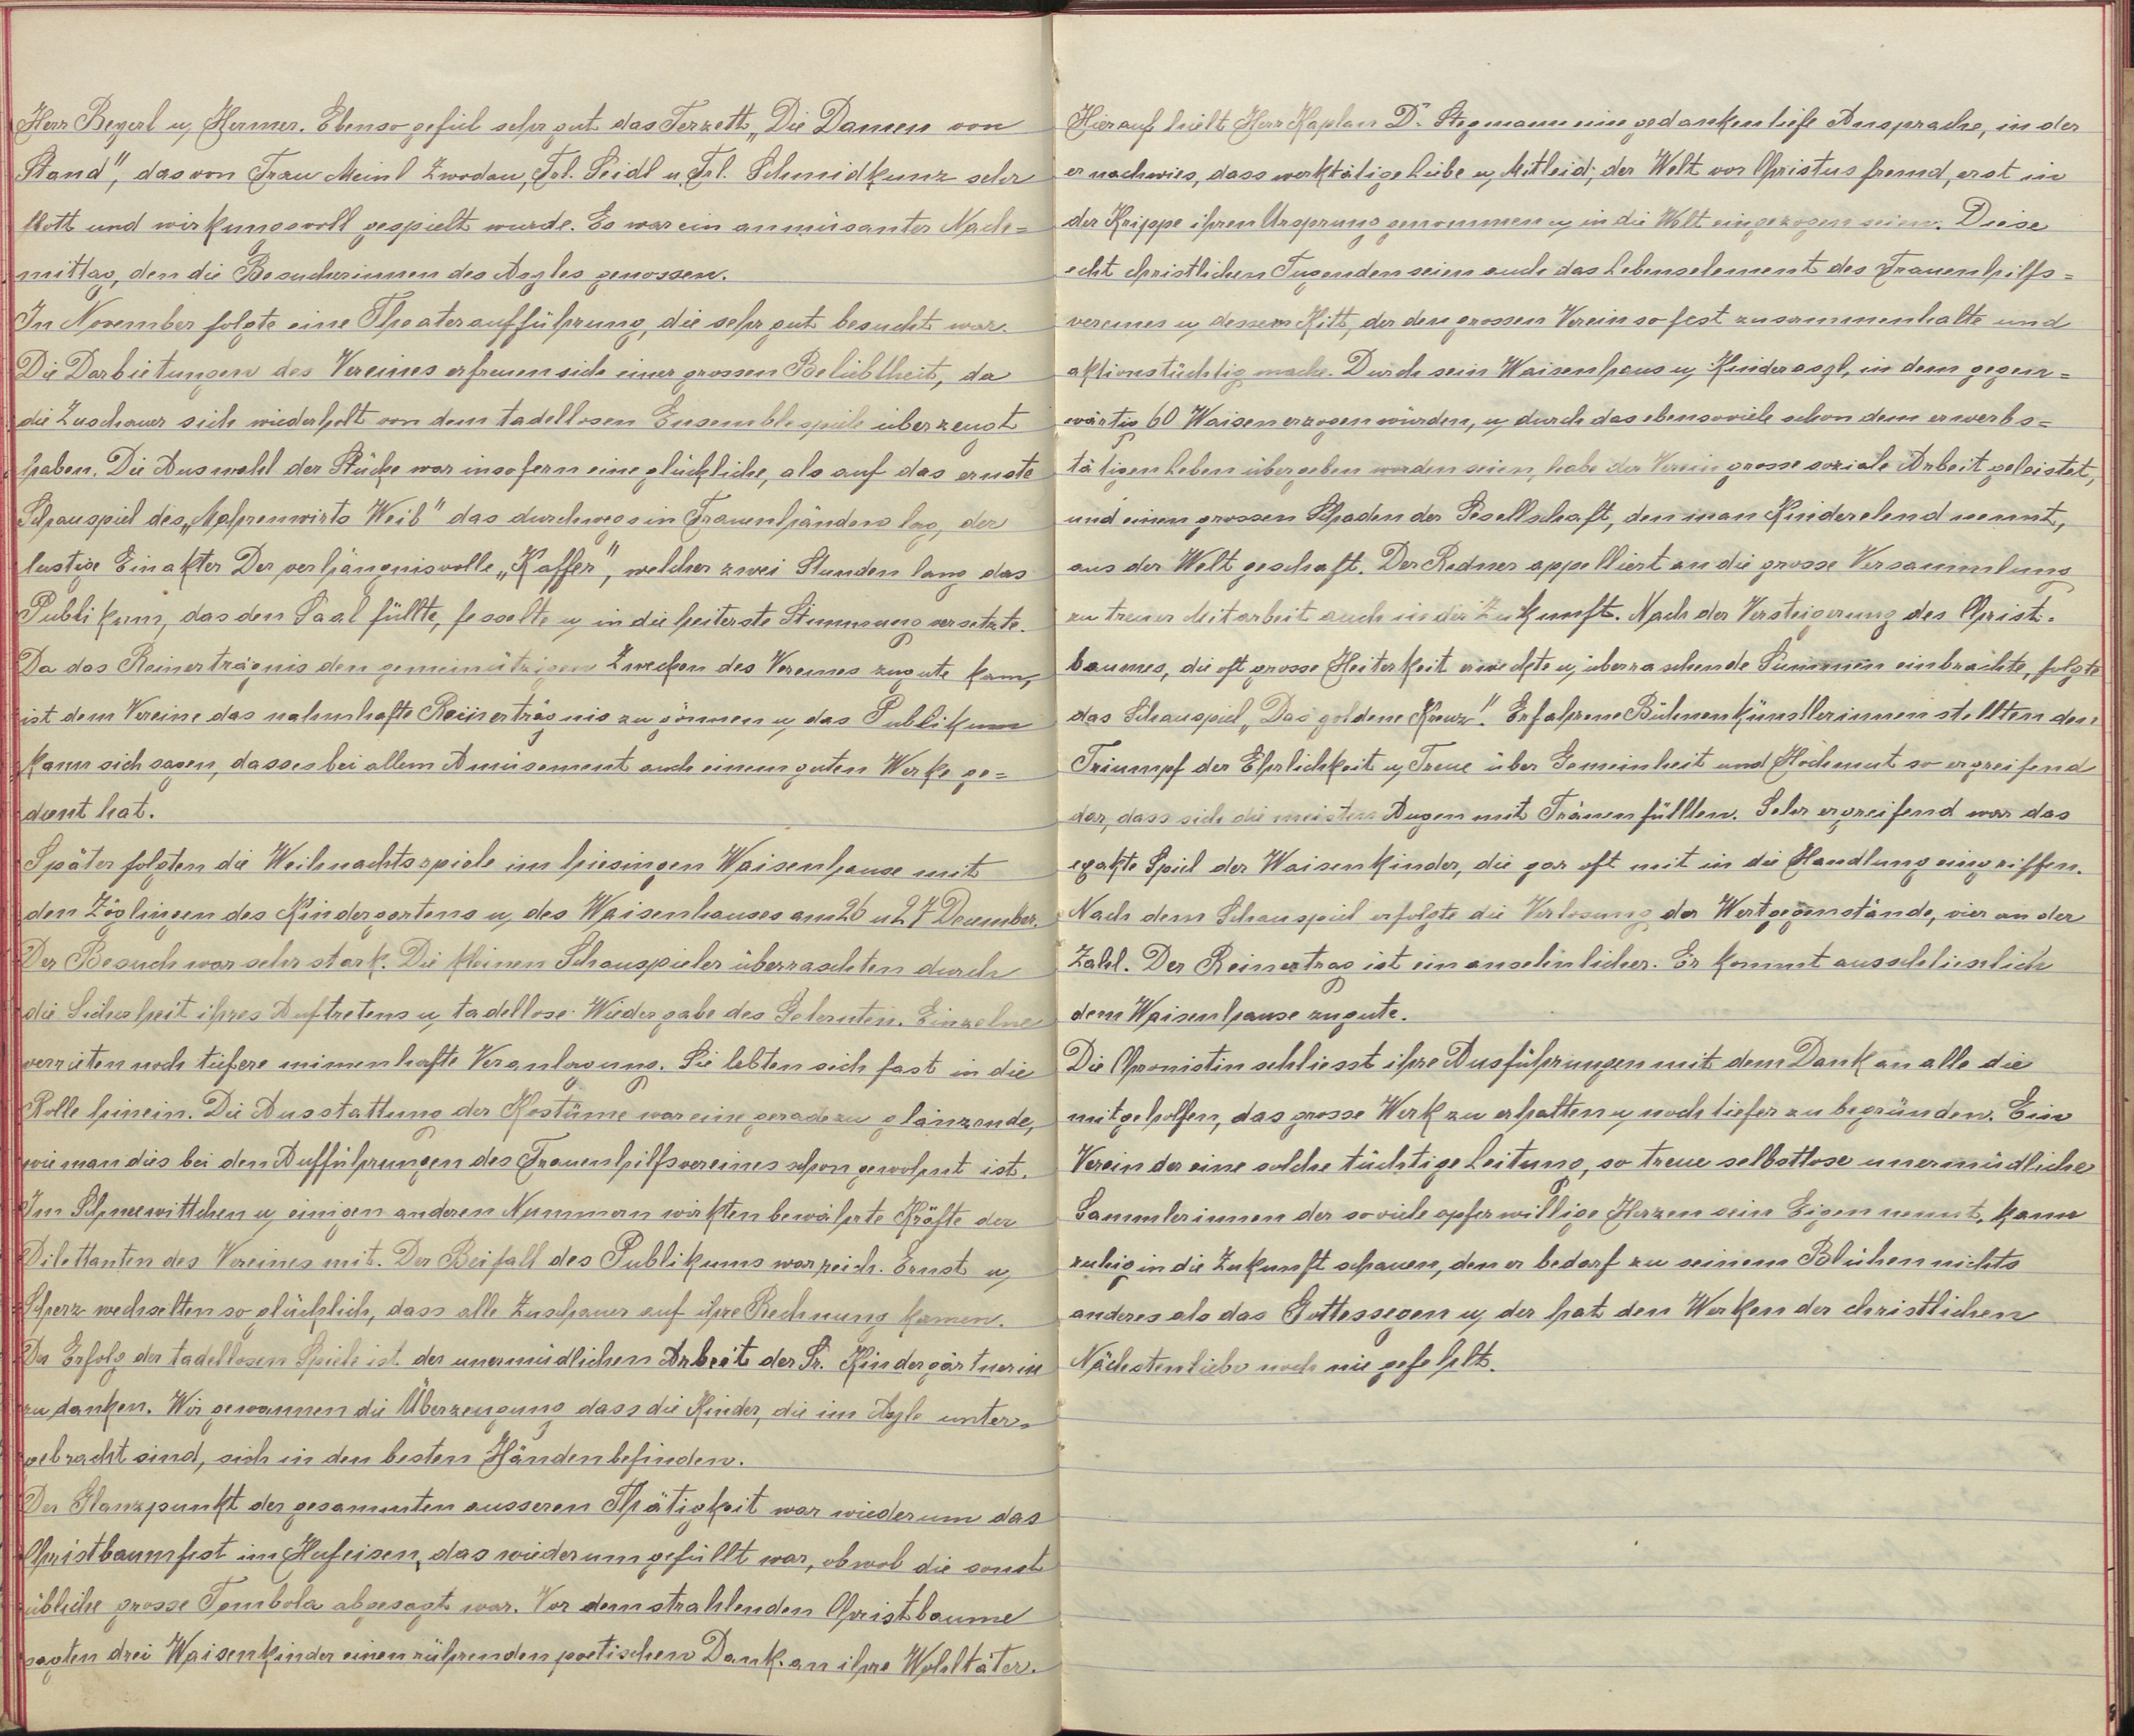 Herr Beyerl u. Hermer. Ebenso gefiel sehr gut das Terzett „Die Damen von
Stand", das von Frau Meinl Zwodau, Frl. Seidl u. Frl. Schmidkunz sehr
flott und wirkungsvoll gespielt wurde. Es war ein amüsanter Nach=
mittag, den die Besucherinnen des Asyles genossen.
In November folgte eine Theateraufführung, die sehr gut besucht war.
Die Darbietungen des Vereines erfreuen sich einer grossen Beliebtheit, da
die Zuschauer sich wiederholt von dem tadellosen Ensemblespiele überzeugt
haben. Die Auswahl der Stücke war insofern eine glückliche, als auf das ernste
Schauspiel des „Mahrenwirts Weib" das durchwegs in Frauenhänden lag, der
lustige Einakter Der verhängnisvolle „Kaffer", welcher zwei Stunden lang das
Publikum, das den Saal füllte, fesselte u. in die heiterste Stimmung versetzte.
Da das Reinerträgnis den gemeinützigen Zwecken des Vereines zugute kam,
ist dem Vereine das nahmhafte Reinerträgnis zu gönnen u. das Publikum
kann sich sagen, dass es bei allem Amüsement auch einem guten Werke ge=
dient hat.
Später folgten die Weihnachtsspiele im hiesingen Waisenhause mit
den Zöglingen des Kindergartens u. des Waisenhauses am 26 u 27 Dezember.
Der Besuch war sehr stark. Die kleinen Schauspieler überraschten durch
die Sicherheit ihres Auftretens u. tadellose Wiedergabe des Gelernten. Einzelne
verrieten noch tiefere mimenhafte Veranlagung. Sie lebten sich fast in die
Rolle hinein. Die Ausstattung der Kostüme war eine geradezu glänzende,
wie man dies bei den Aufführungen des Frauenhilfsvereines schon gewohnt ist.
Im Schneewittchen u. einigen anderen Nummern wirkten bewährte Kräfte der
Dilettanten des Vereines mit. Der Beifall des Publikums war reich. Ernst u.
Scherz wechselten so glücklich, dass alle Zuschauer auf ihre Rechnung kamen.
Der Erfolg der tadellosen Spiele ist der unermüdlichen Arbeit der Sr. Kindergärtnerin
zu danken. Wir gewannen die Überzeugung dass die Kinder, die im Asyle unter=
gebracht sind, sich in den besten Händen befinden.
Der Glanzpunkt der gesammten ausseren Thätigkeit war wiederum das
Christbaumfest im Hufeisen, das wiederum gefüllt war, obwol die sonst
übliche grosse Tombola abgesagt war. Vor dem strahlenden Christbaume
sagten drei Waisenkinder einen rührenden poetischen Dank an ihre Wohltäter.
Hierauf hielt Herr Kaplan Dr. Stegmann eine gedankentiefe Ansprache, in der
er nachwies, dass werktätige Liebe u. Mitleid, der Welt vor Christus fremd, erst in
der Krippe ihren Ursprung genommen u. in die Welt eingezogen seien. Diese
echt christlichen Tugenden seien auch das Lebenselement des Frauenhilfs=
vereines u. dessem Kitt, der den grossen Verein so fest zusammenhalte und
aktionstüchtig mache. Durch sein Waisenhaus u. Kinderasyl, in dem gegen=
wärtig 60 Waisen erzogen würden, u. durch das ebensoviele schon dem erwerbs=
tätigen Leben übergeben worden seien, habe der Verein grosse soziale Arbeit geleistet,
und einen grossen Schaden der Gesellschaft, den man Kinderelend nennt,
aus der Welt geschaft. Der Redner appelliert an die grosse Versammlung
zu treuer Mitarbeit auch in der Zukunft. Nach der Versteigerung des Christ-
baumes, die oft grosse Heiterkeit erweckte u. überraschende Summen einbrachte, folgte
das Schauspiel „Das goldene Kreuz". Erfahrene Bühnenkünstlerinnen stellten den
Triumpf der Ehrlichkeit u. Treue über Gemeinheit und Hochmut so ergreifend
dar, dass sich die meisten Augen mit Tränen füllten. Sehr ergreifend war das
exakte Spiel der Waisenkinder, die gar oft mit in die Handlung eingriffen.
Nach dem Schauspiel erfolgte die Verlosung der Wertgegenstände, vier an der
Zahl. Der Reinertrag ist ein ansehnlicher. Er kommt ausschlieslich
dem Waisenhause zugute.
Die Chronistin schliesst ihre Ausführungen mit dem Dank an alle die
mitgeholfen, das grosse Werk zu erhalten u. noch tiefer zu begründen. Ein
Verein der eine solche tüchtige Leitung, so treue selbstlose unermüdliche
Sammlerinnen der so viele opferwillige Herzen sein Eigen nennt, kann
ruhig in die Zukunft schauen, den er bedarf zu seinem Blühen nichts
anderes als das Gottessegen u. der hat den Werken der christlichen
Nächstenliebe noch nie gefehlt.